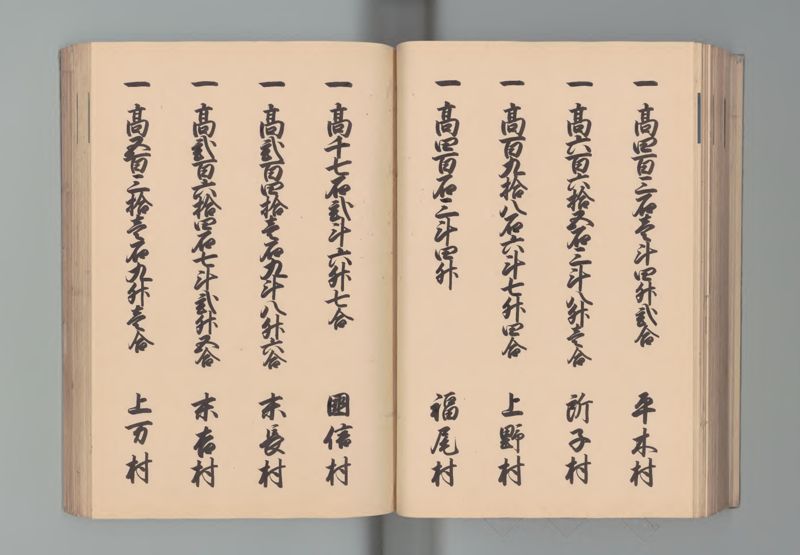 一 高四百三石壱斗四升弐合 平木村
一 高六百六拾五石三斗八升壱合 所子村
一 高百九拾八石六斗七升四合 上野村
一 高四百石三斗四升 福尾村
一 高千七石弐斗六升七合 國信村
一 高弐百四拾壱石九斗八升六合 末長村
一 高弐百六拾四石七斗弐升五合 末吉村
一 高五百三拾壱石九升壱合 上万村